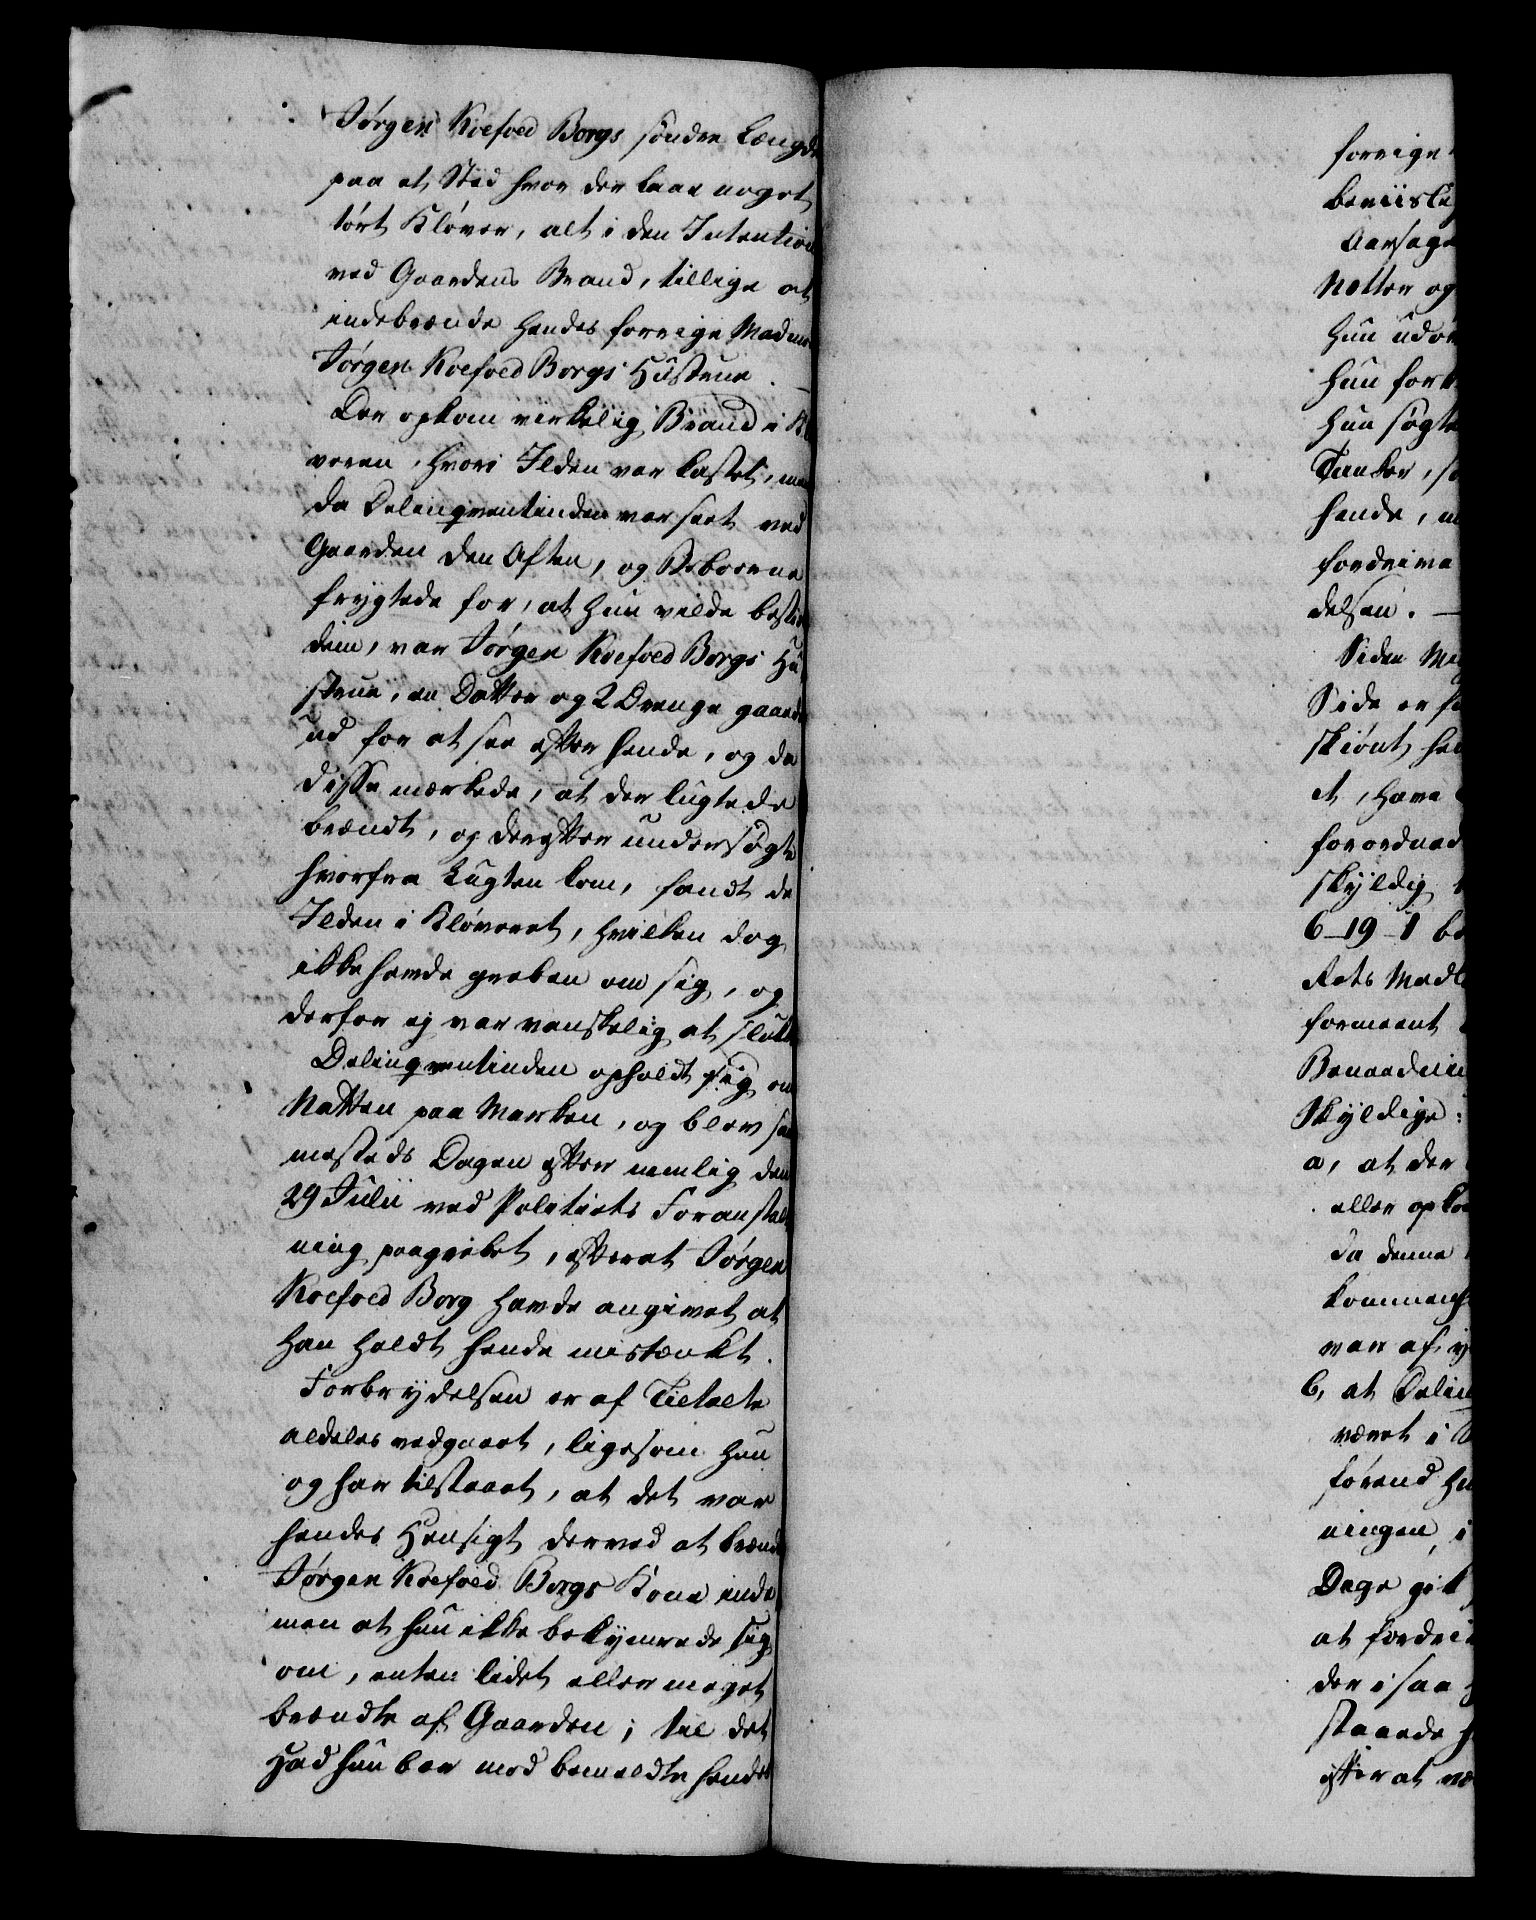 Jørgen Koefoed Borgs søndre Længde
paa et Sted hvor der laae noget
tørt Kløver, alt i den Intention
ved Gaardens Brand, tillige at
indebrænde hendes forrige Madmo
Jørgen Koefoed Borgs Hustrue. –
Der opkom virkelig Brand i Klø
veren, hvori Ilden var kastet, men
da Delinqventinden var seet ved
Gaarden den Aften, og Beboerne
frygtede for, at hun vilde bestie
dem, var Jørgen Koefoed Borgs Hu
strue, en Datter og 2 Drenge gaaede
ud for at see efter hende, og da
disse mærkede, at der lugtede
brændt, og derefter undersøgte
hvorfra Lugten kom, fandt de
Ilden i Kløveret, hvilken dog
ikke havde greben om sig, og
derfor ej var vanskelig at slukke
Delinqventinden opholdt sig om
Natten paa Marken, og blev sam
mesteds Dagen efter nemlig den
29 Julii ved Politiets Foranstalt
ning paagrebet, efterat Jørgen
Koefoed Borg havde angivet at
han holdt hende mistænkt.
Forbrydelsen er af Tiltalte
aldeles vedgaaet, ligesom hun
og har tilstaaet, at det var
hendes Hensigt derved at brænde
Jørgen Koefoed Borgs Kone inde
men at hun ikke bekymrede sig
om, enten lidet eller meget
brændte af Gaarden; til det
Had hun bar mod bemeldte hendes
forrige
beviislig
Aarsage
Nætter og
hun udøv
hun fork
hun søgte
Tanker, so
hende, m
fordrive
delsen. –
Siden
Side er
skiønt he
et, have
forordned
skyldig
6–19–1 be
Rets Medl
formeent
Benaadnin
Skyldige:
a, at der
eller opkom
da denne
kommen
var af
b, at Delin
været i
førend hu
ningen, i
Dage gik
at fordri
der i saa
staaede
efterat væ